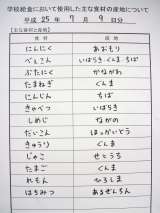 学校給食において使用した主な食材の産地について
平成 25年 7月 9日分
【主な食材と産地】
食材 産地
にんにく あおもり
べえこん いばらき・ぐんま・ちば
ぶたにく かながわ
たまねぎ ぐんま
にんじん ちば
きゃべつ いばらき
しめじ ながの
だいこん ほっかいどう
きゅうり ぐんま
じゃこ せとうち
たまご ぐんま
れもん ひろしま
はちみつ あるぜんちん